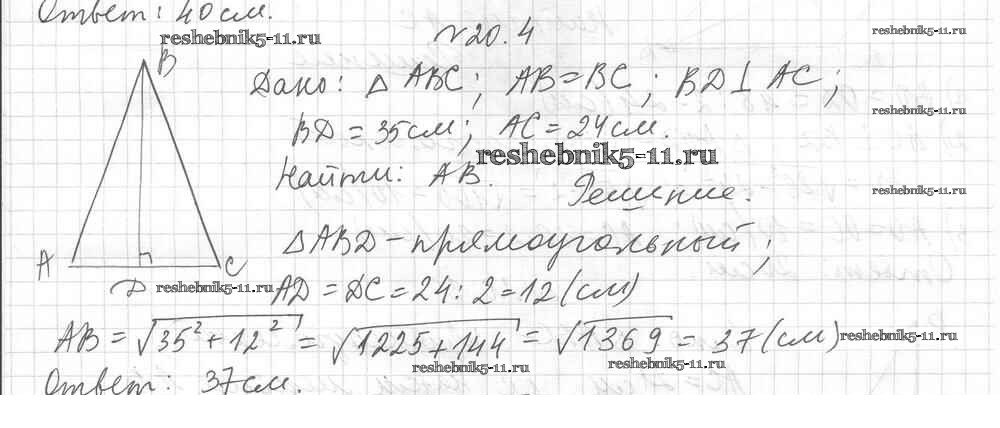 Ответ: 40 см.
reshebnik5-11.ru
№20.4
reshebnik5-11.ru
B
Дано: △ ABC; AB = BC; BD ⊥ AC;
reshebnik5-11.ru
BD = 35 см; AC = 24 см.
reshebnik5-11.ru
Найти: AB.
Решение.
reshebnik5-11.ru
△ABD - прямоугольный;
A
C
D
reshebnik5-11.ru
AD = DC = 24 : 2 = 12 (см)
AB = √35² + 12² = √1225 + 144 = √1369 = 37 (см)
reshebnik5-11.ru
reshebnik5-11.ru
reshebnik5-11.ru
Ответ: 37 см.